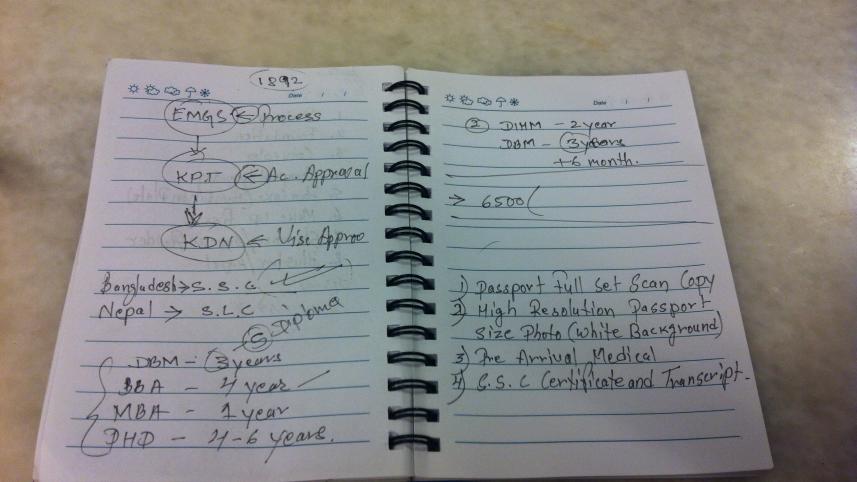 1892
Date / /
EMGS ← Process
↓
KPT ← Ac. Appraral
↓
KDN ← Vise Approo
Bangladesh → S.S.C
Nepal → S.L.C
5 Diploma
DBM - 3 years
BBA - 4 year
MBA - 1 year
PHD - 4-6 years.
Date / /
2 DIHM - 2 year
DBM - 3 years
+6 month.
→ 6500(
1) Passport Full Set Scan Copy
2) High Resolution Passport
Size Photo (White Background)
3) Pre Arrival Medical
4) S.S.C Certificate and Transcript.